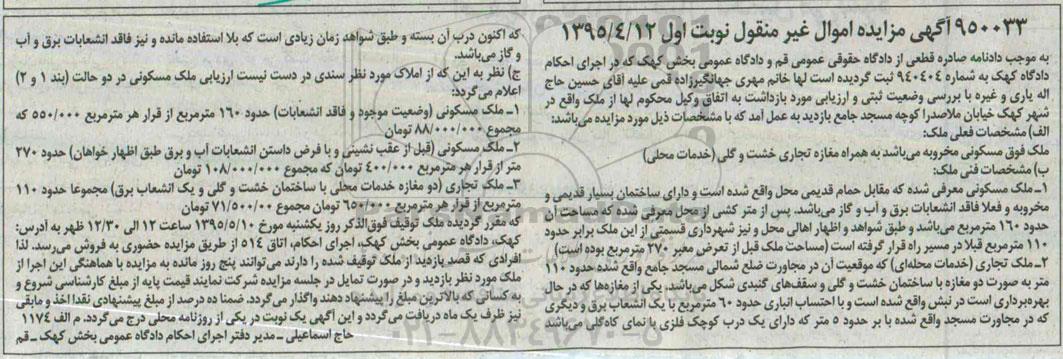 ۹۵۰۰۳۳ آگهی مزایده اموال غیر منقول نوبت اول ۱۳۹۵/٤/۱۲
به موجب دادنامه صادره قطعی از دادگاه حقوقی عمومی قم و دادگاه عمومی بخش کهک که در اجرای احکام
دادگاه کهک به شماره ۹٤۰٤۰٤ ثبت گردیده است لها خانم مهری جهانگیرزاده قمی علیه آقای حسین حاج
اله یاری و غیره با بررسی وضعیت ثبتی و ارزیابی مورد بازداشت به اتفاق وکیل محکوم لها از ملک واقع در
شهر کهک خیابان ملاصدرا کوچه مسجد جامع بازدید به عمل آمد که با مشخصات ذیل مورد مزایده می‌باشد:
الف) مشخصات فعلی ملک:
ملک فوق مسکونی مخروبه می‌باشد به همراه مغازه تجاری خشت و گلی (خدمات محلی)
ب) مشخصات فنی ملک:
۱ـ ملک مسکونی معرفی شده که مقابل حمام قدیمی محل واقع شده است و دارای ساختمان بسیار قدیمی و
مخروبه و فعلا فاقد انشعابات برق و آب و گاز می‌باشد. پس از متر کشی از محل معرفی شده که مساحت آن
حدود ۱٦۰ مترمربع می‌باشد و طبق شواهد و اظهار اهالی محل و نیز شهرداری قسمتی از این ملک برابر حدود
۱۱۰ مترمربع قبلا در مسیر راه قرار گرفته است (مساحت ملک قبل از تعرض معبر ۲۷۰ مترمربع بوده است)
۲ـ ملک تجاری (خدمات محله‌ای) که موقعیت آن در مجاورت ضلع شمالی مسجد جامع واقع شده حدود ۱۱۰
متر به صورت دو مغازه با ساختمان خشت و گلی و سقف‌های گنبدی شکل می‌باشد. یکی از مغازه‌ها که در حال
بهره‌برداری است در نبش واقع شده است و با احتساب انباری حدود ٦۰ مترمربع با یک انشعاب برق و دیگری
که در مجاورت مسجد واقع شده با بر حدود ٥ متر که دارای یک درب کوچک فلزی با نمای کاه‌گلی می‌باشد
که اکنون درب آن بسته و طبق شواهد زمان زیادی است که بلا استفاده مانده و نیز فاقد انشعابات برق و آب
و گاز می‌باشد.
ج) نظر به این که از املاک مورد نظر سندی در دست نیست ارزیابی ملک مسکونی در دو حالت (بند ۱ و ۲)
اعلام می‌گردد:
۱ـ ملک مسکونی (وضعیت موجود و فاقد انشعابات) حدود ۱٦۰ مترمربع از قرار هر مترمربع ٥٥۰/۰۰۰ که
مجموع ۸۸/۰۰۰/۰۰۰ تومان
۲ـ ملک مسکونی (قبل از عقب نشینی و با فرض داشتن انشعابات آب و برق طبق اظهار خواهان) حدود ۲۷۰
متر از قرار هر مترمربع ٤۰۰/۰۰۰ تومان که مجموع ۱۰۸/۰۰۰/۰۰۰ تومان
۳ـ ملک تجاری (دو مغازه خدمات محلی با ساختمان خشت و گلی و یک انشعاب برق) مجموعا حدود ۱۱۰
مترمربع از قرار هر مترمربع ٦٥۰/۰۰۰ تومان مجموع ۷۱/٥۰۰/۰۰ تومان
که مقرر گردیده ملک توقیف فوق‌الذکر روز یکشنبه مورخ ۱۳۹٥/٥/۱۰ ساعت ۱۲ الی ۱۲/۳۰ ظهر به آدرس:
کهک، دادگاه عمومی بخش کهک، اجرای احکام، اتاق ٥۱٤ از طریق مزایده حضوری به فروش می‌رسد. لذا
افرادی که قصد بازدید از ملک توقیف شده را دارند می‌توانند پنج روز مانده به مزایده با هماهنگی این اجرا از
ملک مورد نظر بازدید و در صورت تمایل در جلسه مزایده شرکت نمایند قیمت پایه از مبلغ کارشناسی شروع و
به کسانی که بالاترین مبلغ را پیشنهاد دهند واگذار می‌گردد. ضمنا ده درصد از مبلغ پیشنهادی نقدا اخذ و مابقی
نیز ظرف یک ماه دریافت می‌گردد و این آگهی یک نوبت در یکی از روزنامه محلی درج می‌گردد. م الف ۱۱۷٤
حاج اسماعیلی ـ مدیر دفتر اجرای احکام دادگاه عمومی بخش کهک ـ قم
۰۲۱-۸۸۳٤۹٦۷۰-٥